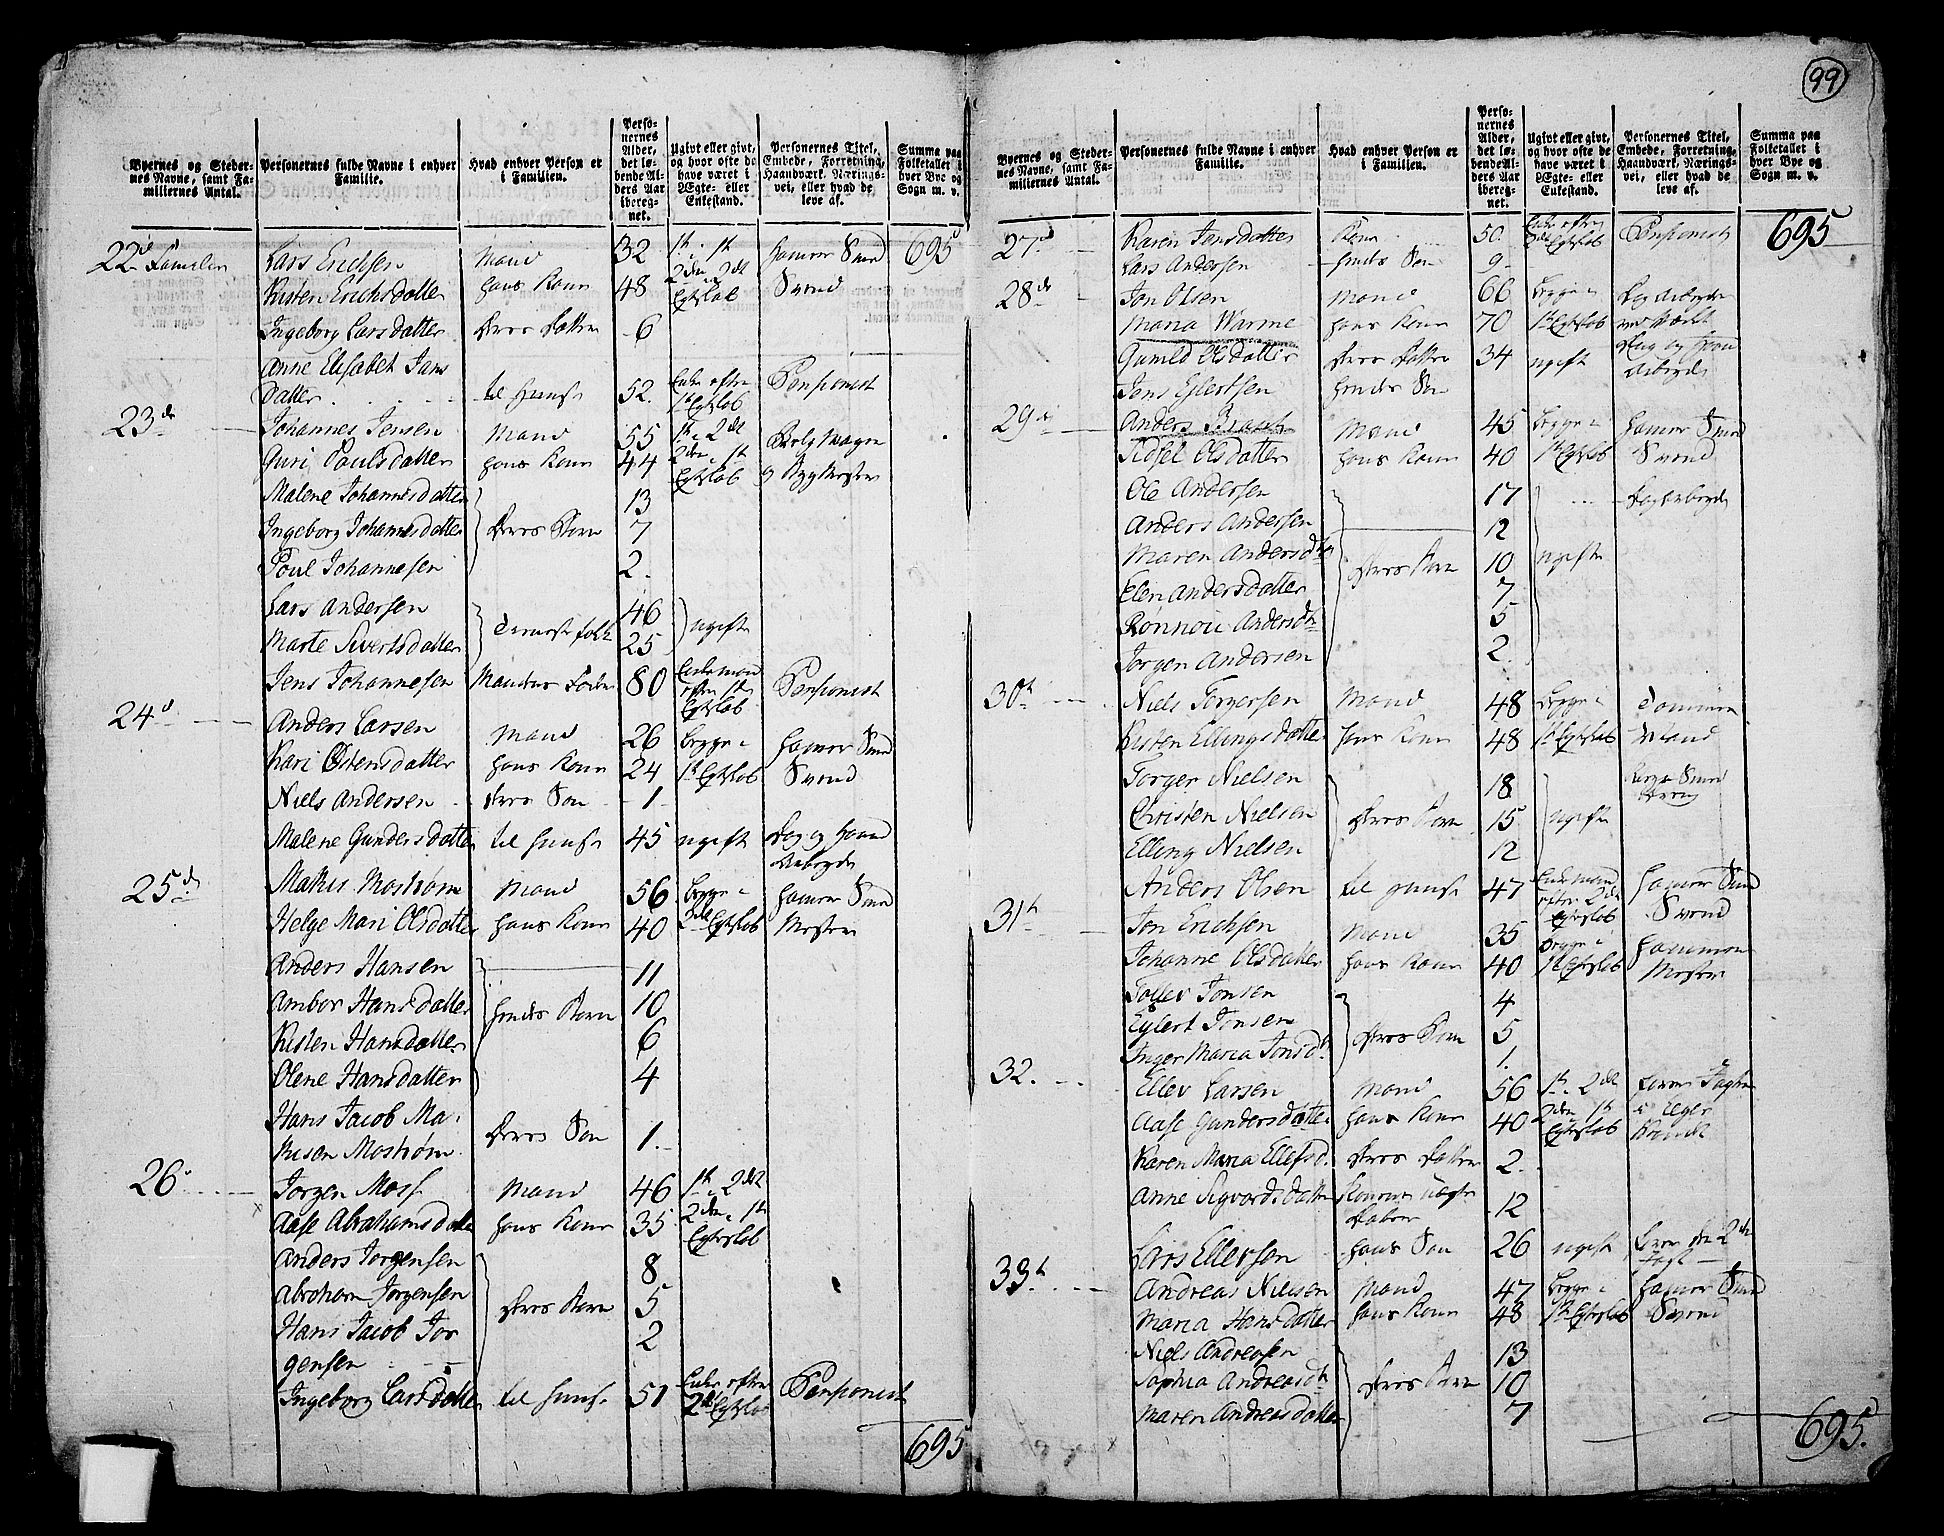 99
Byernes og Steder-
nes Navne, samt Fa-
miliernes Antal.
Personernes fulde Navne i enhver
Familie.
Hvad enhver Person er
i Familien.
Perso-
nernes
Alder,
det lø-
bende Al-
ders Aar
iberegt-
net.
Ugivt eller givt,
og hvor ofte de
have været i
Ægte- eller
Enkestand.
Personernes Titel,
Embede, Forretning,
Haandværk, Nærings-
vei, eller hvad de
leve af.
Summa paa
Folketallet i
hver Bye og
Sogn m. v.
22d Familie Lars Erichsen Mand 32 1st i 1st Hamer Smed 695
Kisten Erichsdatter hans Kone 48 2den i 2det Egteskab Svend
Ingeborg Larsdatter Deres Datter 6
Anne Elisabet Jans
datter til huuse 52. Enke efter 1st Egteskab Pensionist
23de Johannes Jensen Mand 55 1st i 2det Belgmager
Guri Poulsdatter hans Kone 44 2den i 1st Egteskab og Bygmester
Malene Johannesdatter 13
Ingeborg Johannesdatter Deres Børn 7
Poul Johannesen 2.
Lars Andersen 46
Marte Sivertsdatter Tieneste folk 25 ugifte
Jens Johannesen Mandens Fader 80 Enkemand efter 1st Egteskab Pensionist
24d Anders Larsen Mand 26 begge i Hamer Smed
Kari Ostensdatter hans Kone 24 1st Egteskab Svend
Niels Andersen deres Søn 1
Malene Gundersdatter til huuse 45 ugift Dag og Haand Arbeyde
25de Makus Mostrøm Mand 56 begge i Hamer Smed
Helge Mari Olsdatter hans Kone 40 2det Egteskab Mester
Anders Hansen 11
Ambor Hansdatter hendes Børn 10
Kisten Hansdatter 6
Olene Hansdatter 4
Hans Jacob Ma-
kusen Mostrøm Deres Søn 1.
26 Jorgen Moss Mand 46 1st i 2det
Aase Abrahamsdatter hans Kone 35 2den i 1st Egteskab
Anders Jorgensen 8
Abraham Jorgensen Deres Børn 5
Hans Jacob Jor
gensen 2
Ingeborg Larsdatter til huuse 51 Enke efter 2det Egteskab Pensionist
695
Byernes og Steder-
nes Navne, samt Fa-
miliernes Antal.
Personernes fulde Navne i enhver
Familie.
Hvad enhver Person er
i Familien.
Perso-
nernes
Alder,
det lø-
bende Al-
ders Aar
iberegt-
net.
Ugivt eller givt,
og hvor ofte de
have været i
Ægte- eller
Enkestand.
Personernes Titel,
Embede, Forretning,
Haandværk, Nærings-
vei, eller hvad de
leve af.
Summa paa
Folketallet i
hver Bye og
Sogn m. v.
27d Karen Jansdatter Kone 50. Enke efter 2de Egteskab Pensionist 695
Lars Andersen hendes Søn 9
28de Jon Olsen Mand 66 begge i Dag Arbeyder
Maria Warme hans Kone 70 1st Egteskab
Gunild Olsdatter Deres Datter 34 ugift Dag og Haand
Jens Eylertsen hendes Søn Arbeyde
29de Anders Brasch Mand 45 begge i Hamer Smed
Sidsel Olsdatter hans Kone 40 1st Egteskab Svend
Ole Andersen 17 Dagarbeyde
Anders Andersen 12
Maren Andersdtr Deres Børn 10 ugifte
Elen Andersdatter 7
Rønnou Andersdtr 5
Jorgen Andersen 2.
30te Niels Torgersen Mand 48 begge i Tømmer
Kisten Ellingsdatter hans Kone 48 1st Egteskab Mand
Torger Nielsen 18 Smed Dreng
Christen Nielsen Deres Børn 15 ugifte
Elling Nielsen 12
Anders Olsen til huuse 47 Enkemand efter 2de Egteskab Hamer Smed Svend
31te Jon Erichsen Mand 35 begge i Hammer
Johanne Olsdatter hans Kone 40 1st Egteskab Mester
Tollev Jonsen 4
Eylert Jonsen Deres Børn 5
Inger Maria Jonsd. 1.
32. Ellev Larsen Mand 56 1st i 2det
Aase Gundersdatter hans Kone 40 2den i 1st Egteskab
Karen Maria Ellefsd. Deres Datter 2.
Anne Sigvardsdatter 12
Lars Ellevsen hans Søn 26 ugift
33te Andreas Nielsen Mand 47 begge i Hamer Smed
Maria Hansdatter hans Kone 48 1st Egteskab Svend
Niels Andreasen 13
Sophia Andreasdtr Deres Børn 10
Maren Andreasdatter 7
695.